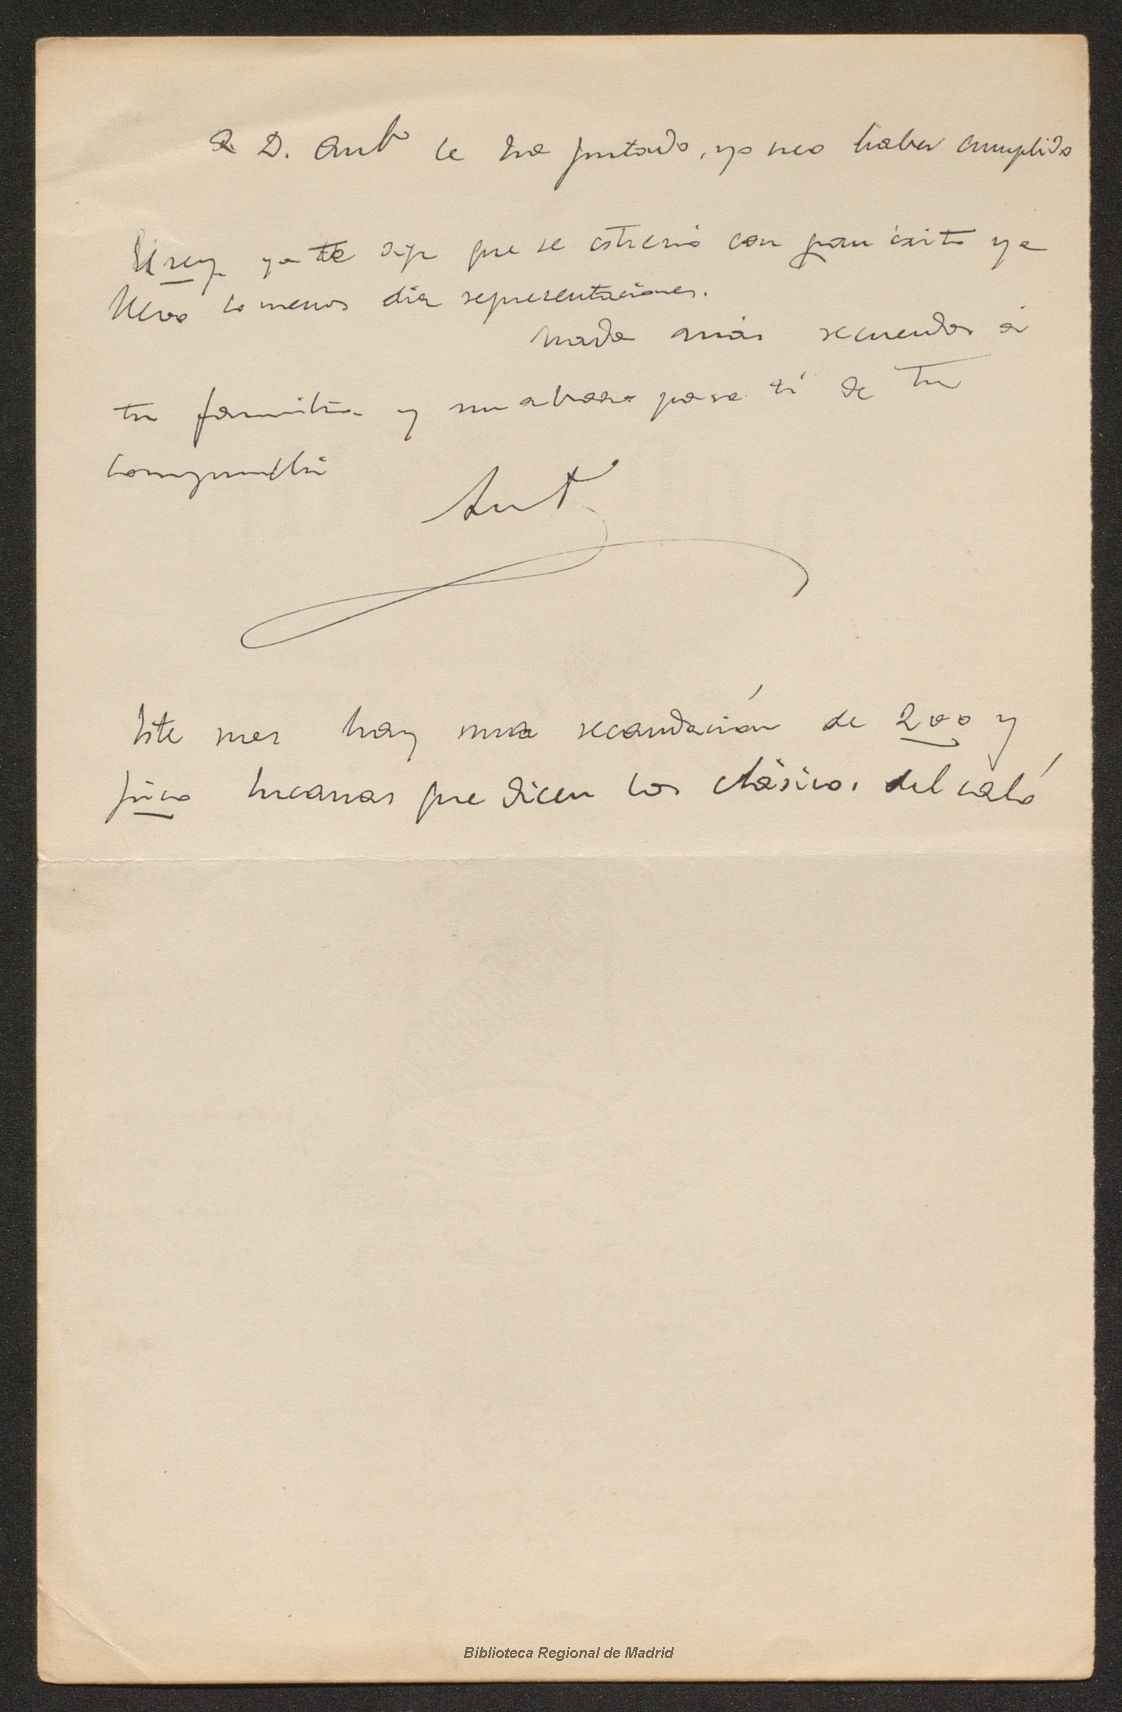 a D. Antº le ha gustado, yo creo haber cumplido
El rey ya te dije que se estrenó con gran éxito ya
lleva lo menos diez representaciones.
Nada más recuerdos á
tu familia y un abrazo para tí de tu
compinchi
Ant
Este mes hay una recaudación de 200 y
pico lucanas que dicen los clásicos del caló
Biblioteca Regional de Madrid